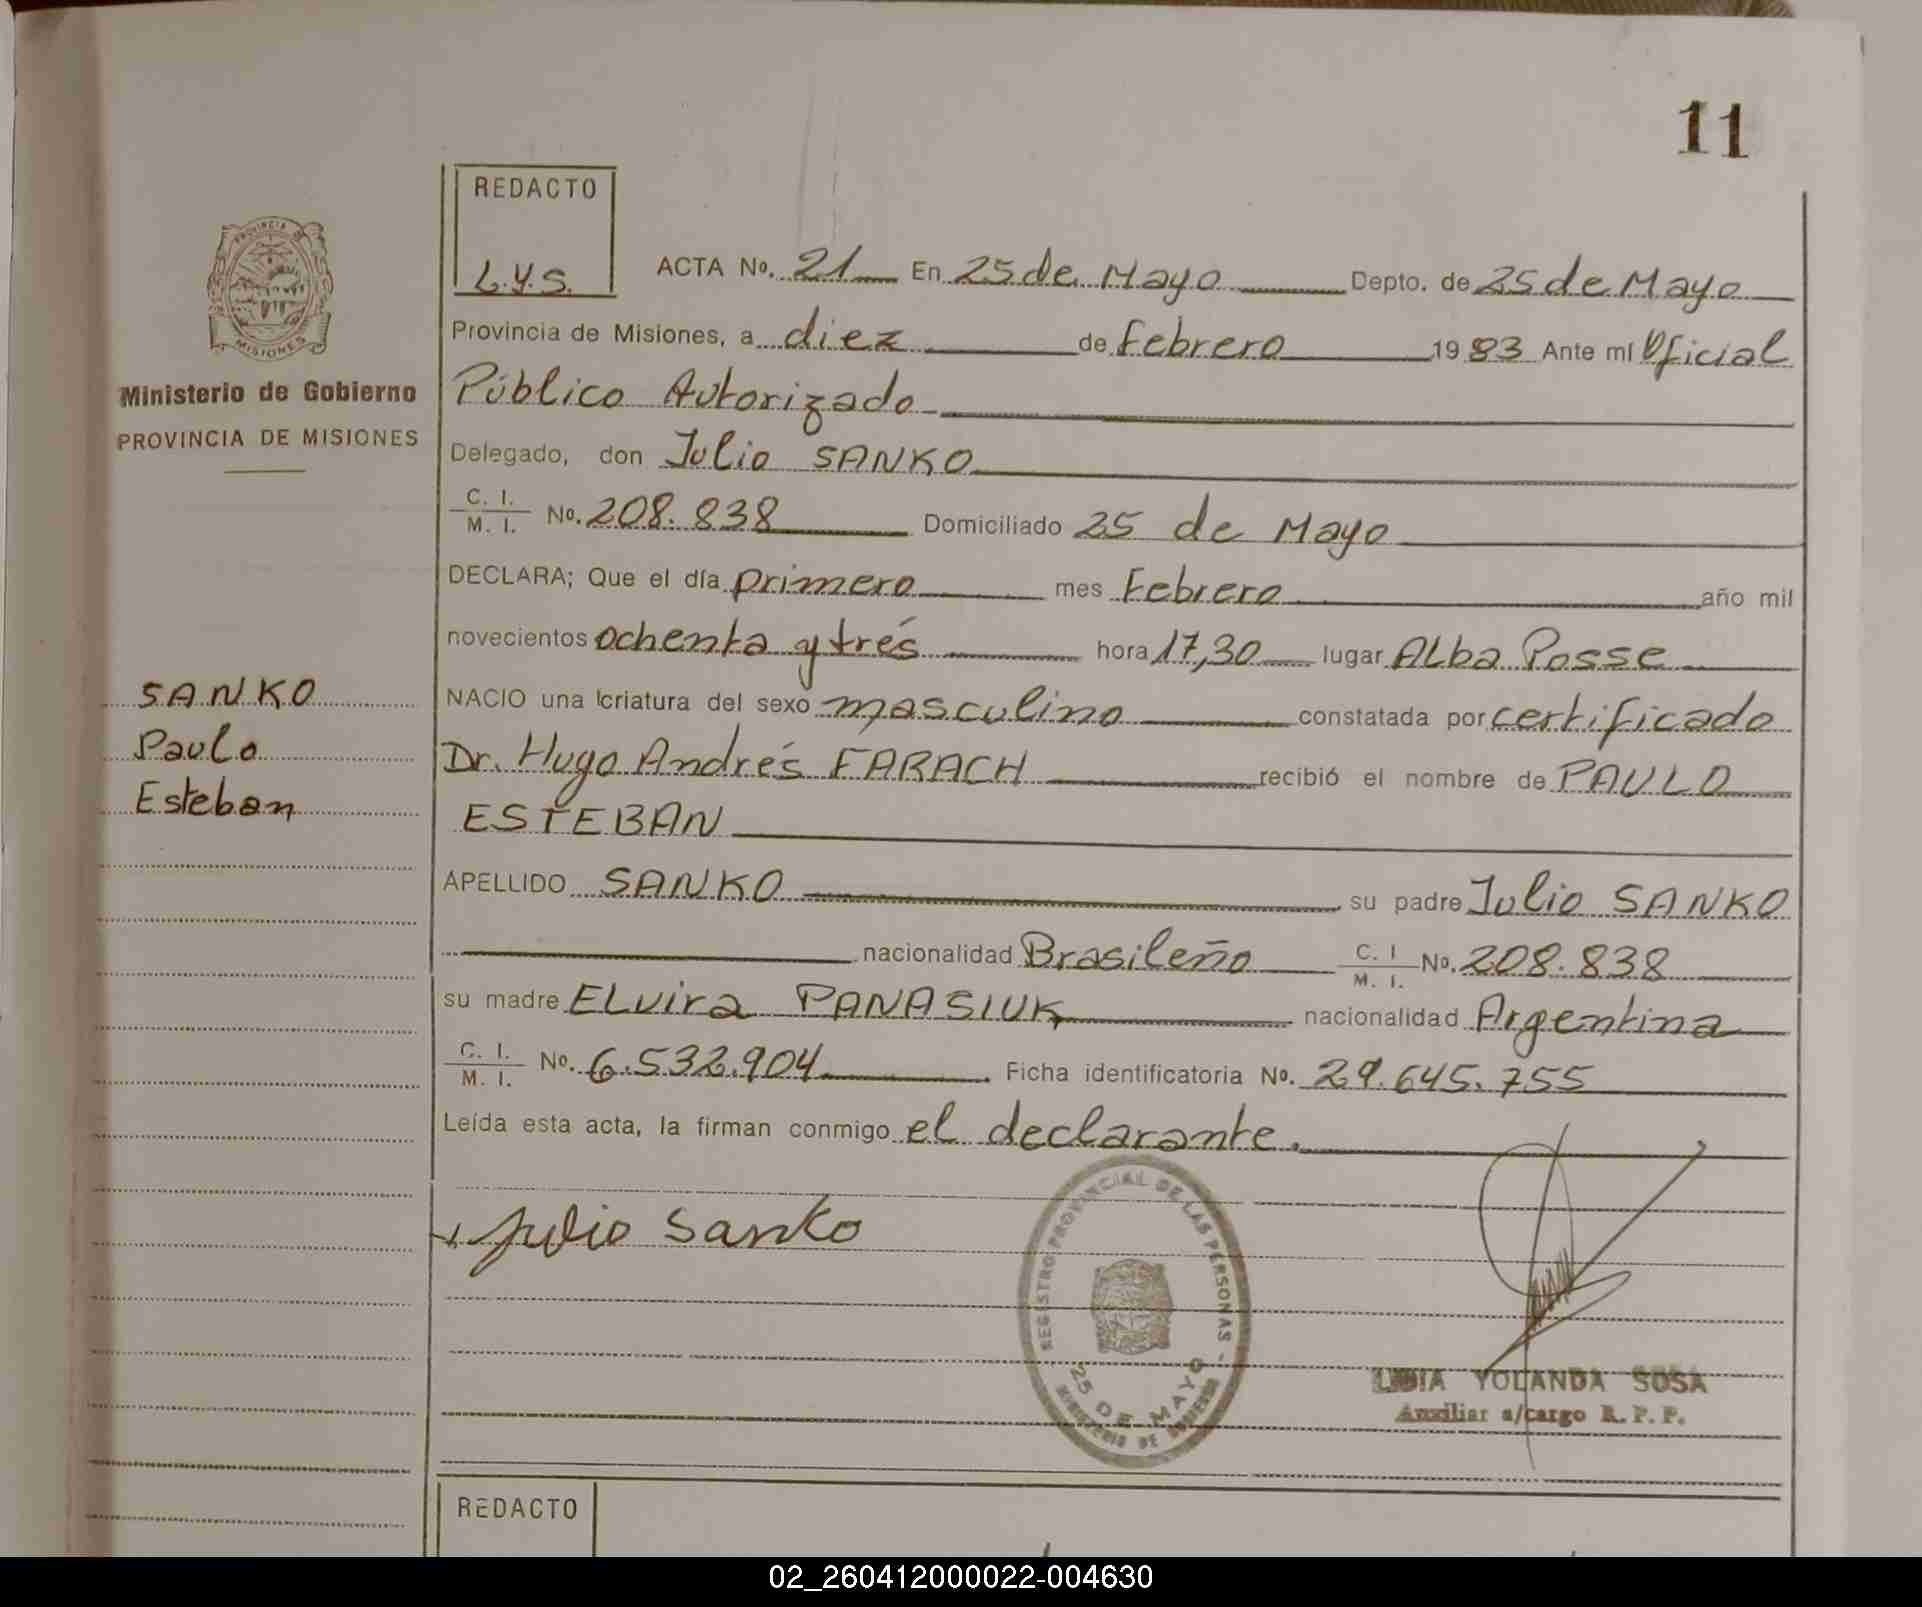 11
REDACTO
L.Y.S.
ACTA No. 21 En 25 de Mayo Depto. de 25 de Mayo
Provincia de Misiones, a diez de Febrero 1983 Ante mí Oficial
Público Autorizado
Delegado, don Julio SANKO
C. I. / M. I. No. 208.838 Domiciliado 25 de Mayo
DECLARA; Que el día primero mes Febrero año mil
novecientos ochenta y trés hora 17,30 lugar Alba Posse
NACIO una criatura del sexo masculino constatada por certificado
Dr. Hugo Andrés FARACH recibió el nombre de PAULO
ESTEBAN
APELLIDO SANKO su padre Julio SANKO
nacionalidad Brasileño C. I / M. I. No. 208.838
su madre ELvira PANASIUK nacionalidad Argentina
C. I. / M. I. No. 6.532.904 Ficha identificatoria No. 29.645.755
Leída esta acta, la firman conmigo el declarante.
Julio Sanko
REGISTRO PROVINCIAL DE LAS PERSONAS -
25 DE MAYO
MINISTERIO DE GOBIERNO
LIDIA YOLANDA SOSA
Auxiliar a/cargo R. P. P.
PROVINCIA DE
MISIONES
Ministerio de Gobierno
PROVINCIA DE MISIONES
SANKO
Paulo
Esteban
REDACTO
02_260412000022-004630